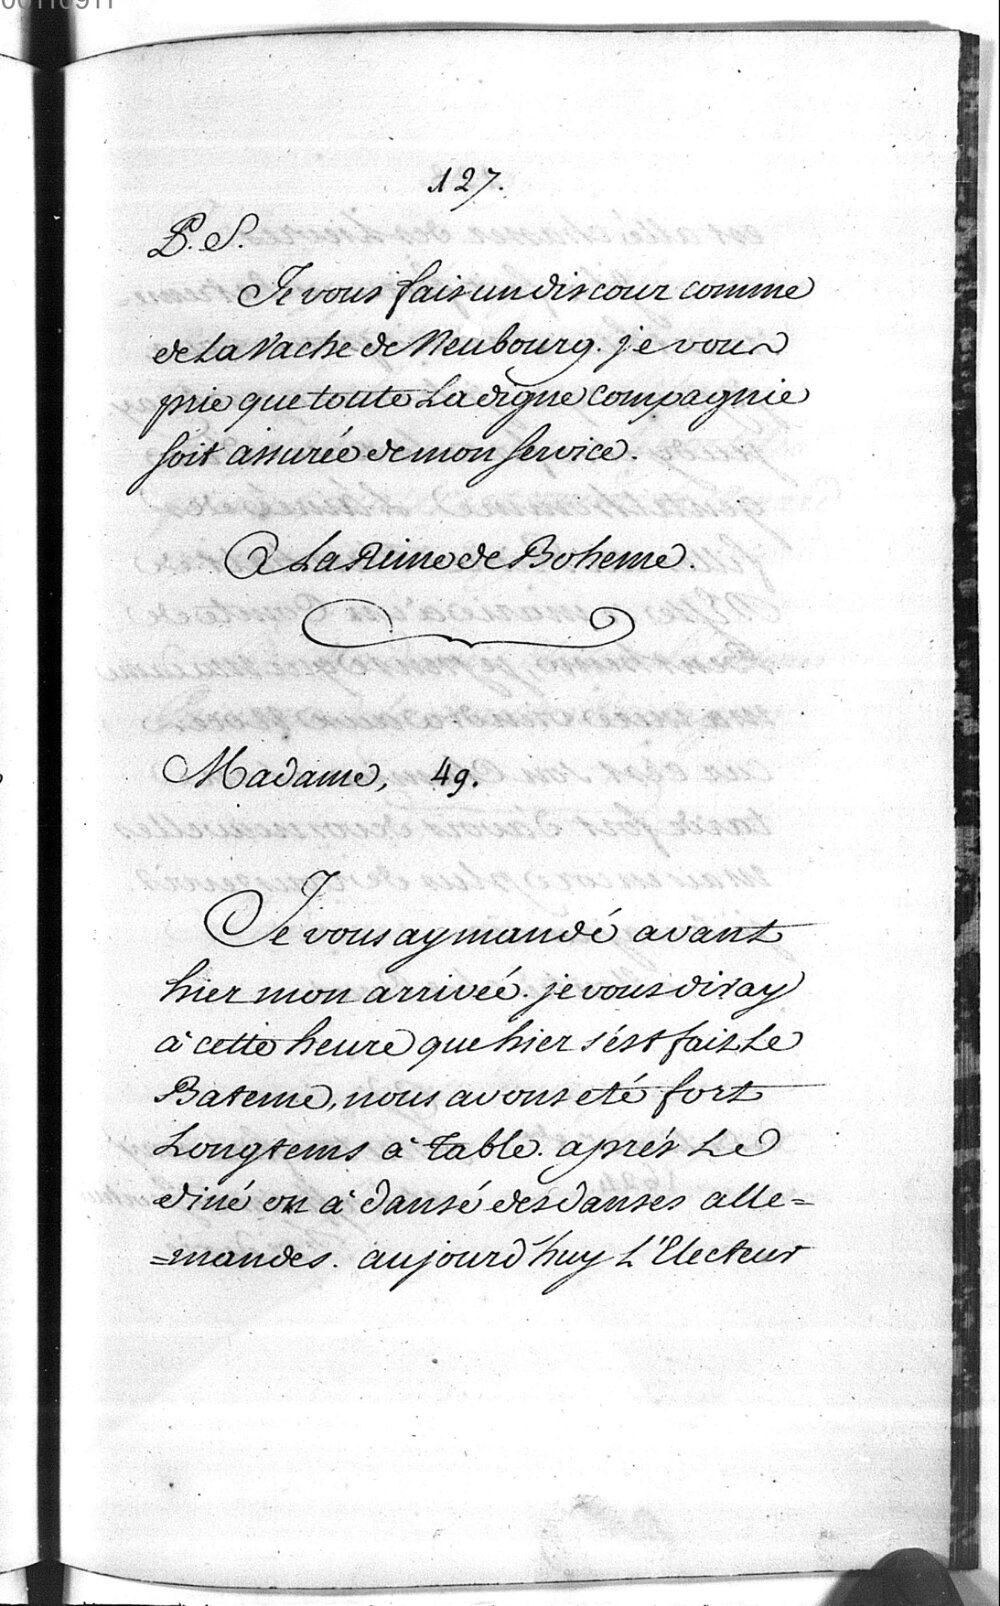 00110911
127.
P. S.
Je vous fais un discour comme
de La Vache de Neubourg. je vous
prie que toute La digne compagnie
soit assurée de mon service.
A La Reine de Boheme.
Madame, 49.
Je vous ay mandé avant
hier mon arrivée. je vous diray
à cette heure que hier s'est fait Le
Bateme, nous avons eté fort
Longtems à table. aprés Le
diné on à dansé des danses alle=
=mandes. aujourd'huy L'Electeur